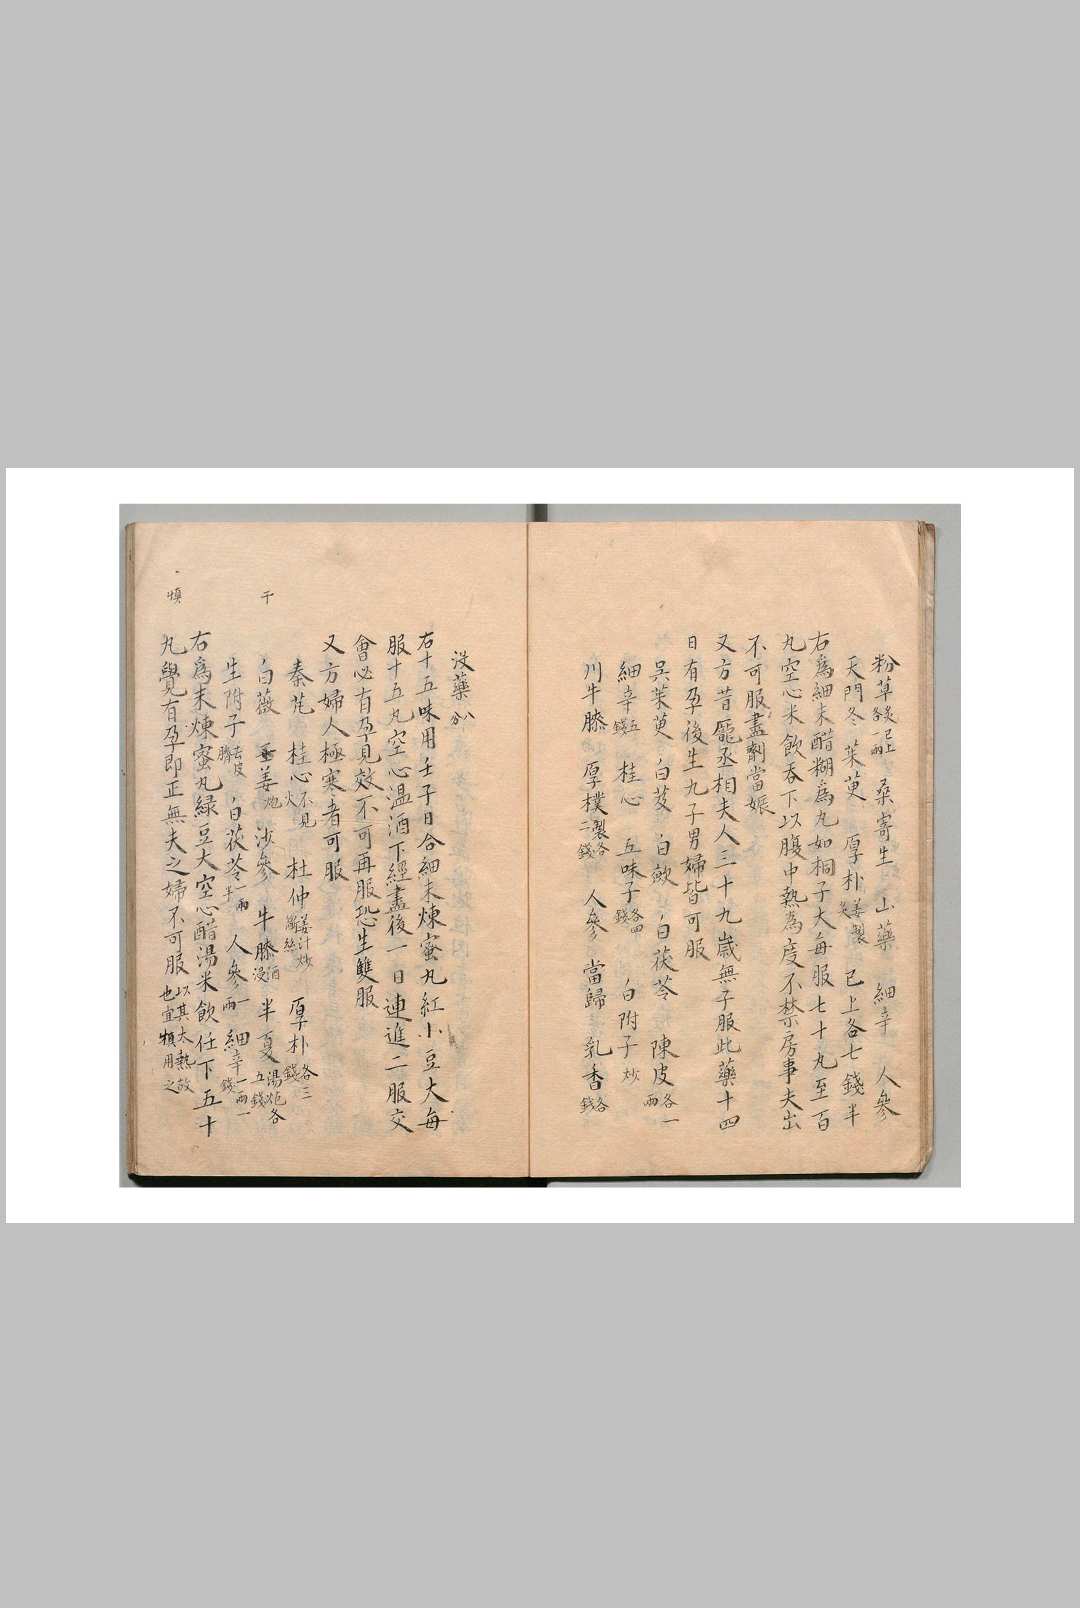 粉草炙已上各一兩 桑寄生 山藥 細辛 人參
天門冬 茱萸 厚朴姜製炙 已上各七錢半
右爲細末醋糊爲丸如桐子大每服七十丸至百
丸空心米飲吞下以腹中熱爲度不禁房事夫出
不可服盡劑當娠
又方昔龐丞相夫人三十九歲無子服此藥十四
日有孕後生九子男婦皆可服
吳茱萸 白芨 白歛 白茯苓 陳皮各一兩
細辛五錢 桂心 五味子各四錢 白附子炒
川牛膝 厚樸製各二錢 人參 當歸 乳香各錢
没藥八分
右十五味用壬子日合細末煉蜜丸紅小豆大每
服十五丸空心温酒下經盡後一日連進二服交
會必有孕見效不可再服恐生雙服
又方婦人極寒者可服
秦芃 桂心不見火 杜仲姜汁炒斷絲 厚朴各三錢
白薇 姜炮 沙參 牛膝酒浸 半夏湯炮各五錢
干
生附子去皮臍 白茯苓一兩半 人參一兩 細辛一兩一錢
右爲末煉蜜丸綠豆大空心醋湯米飲任下五十
丸覺有孕即正無夫之婦不可服以其太熱故也宜㥧用之
慎